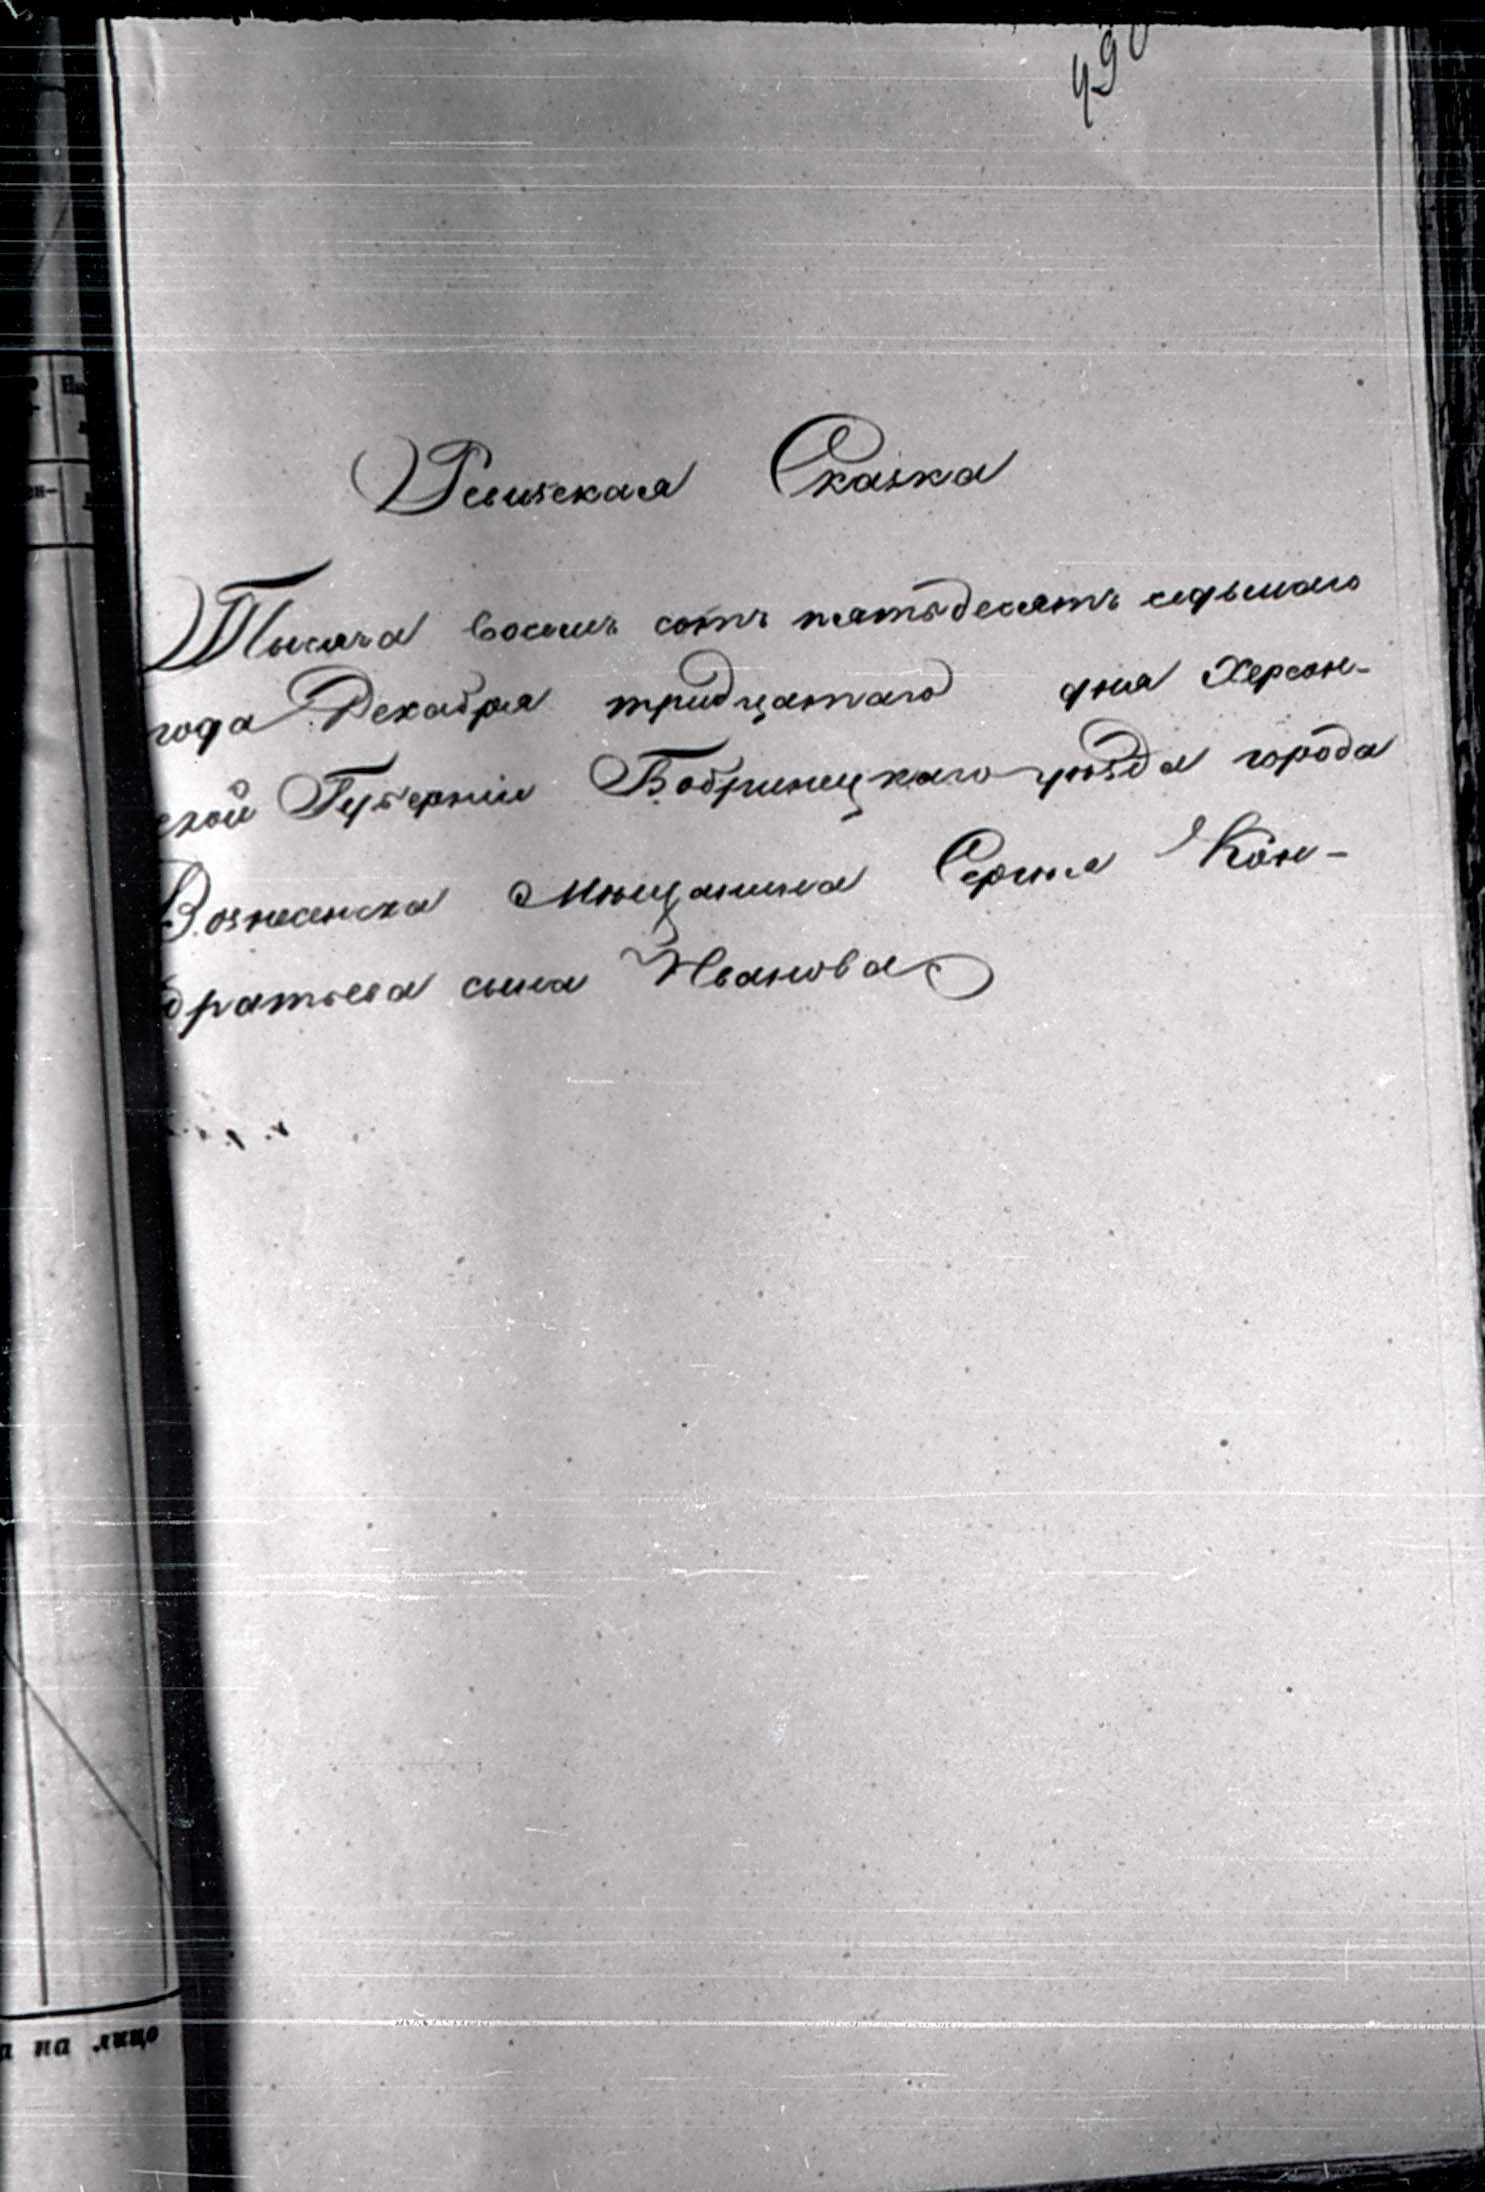 490
Ревизская Сказка
Тысяча восемь сотъ пятьдесятъ седьмаго
года Декабря тридцатаго дня Херсон-
ской Губерніи Бобринецкаго уѣзда города
Вознесенска Мѣщанина Сергѣя Кон-
дратьева сына Иванова
на лицо